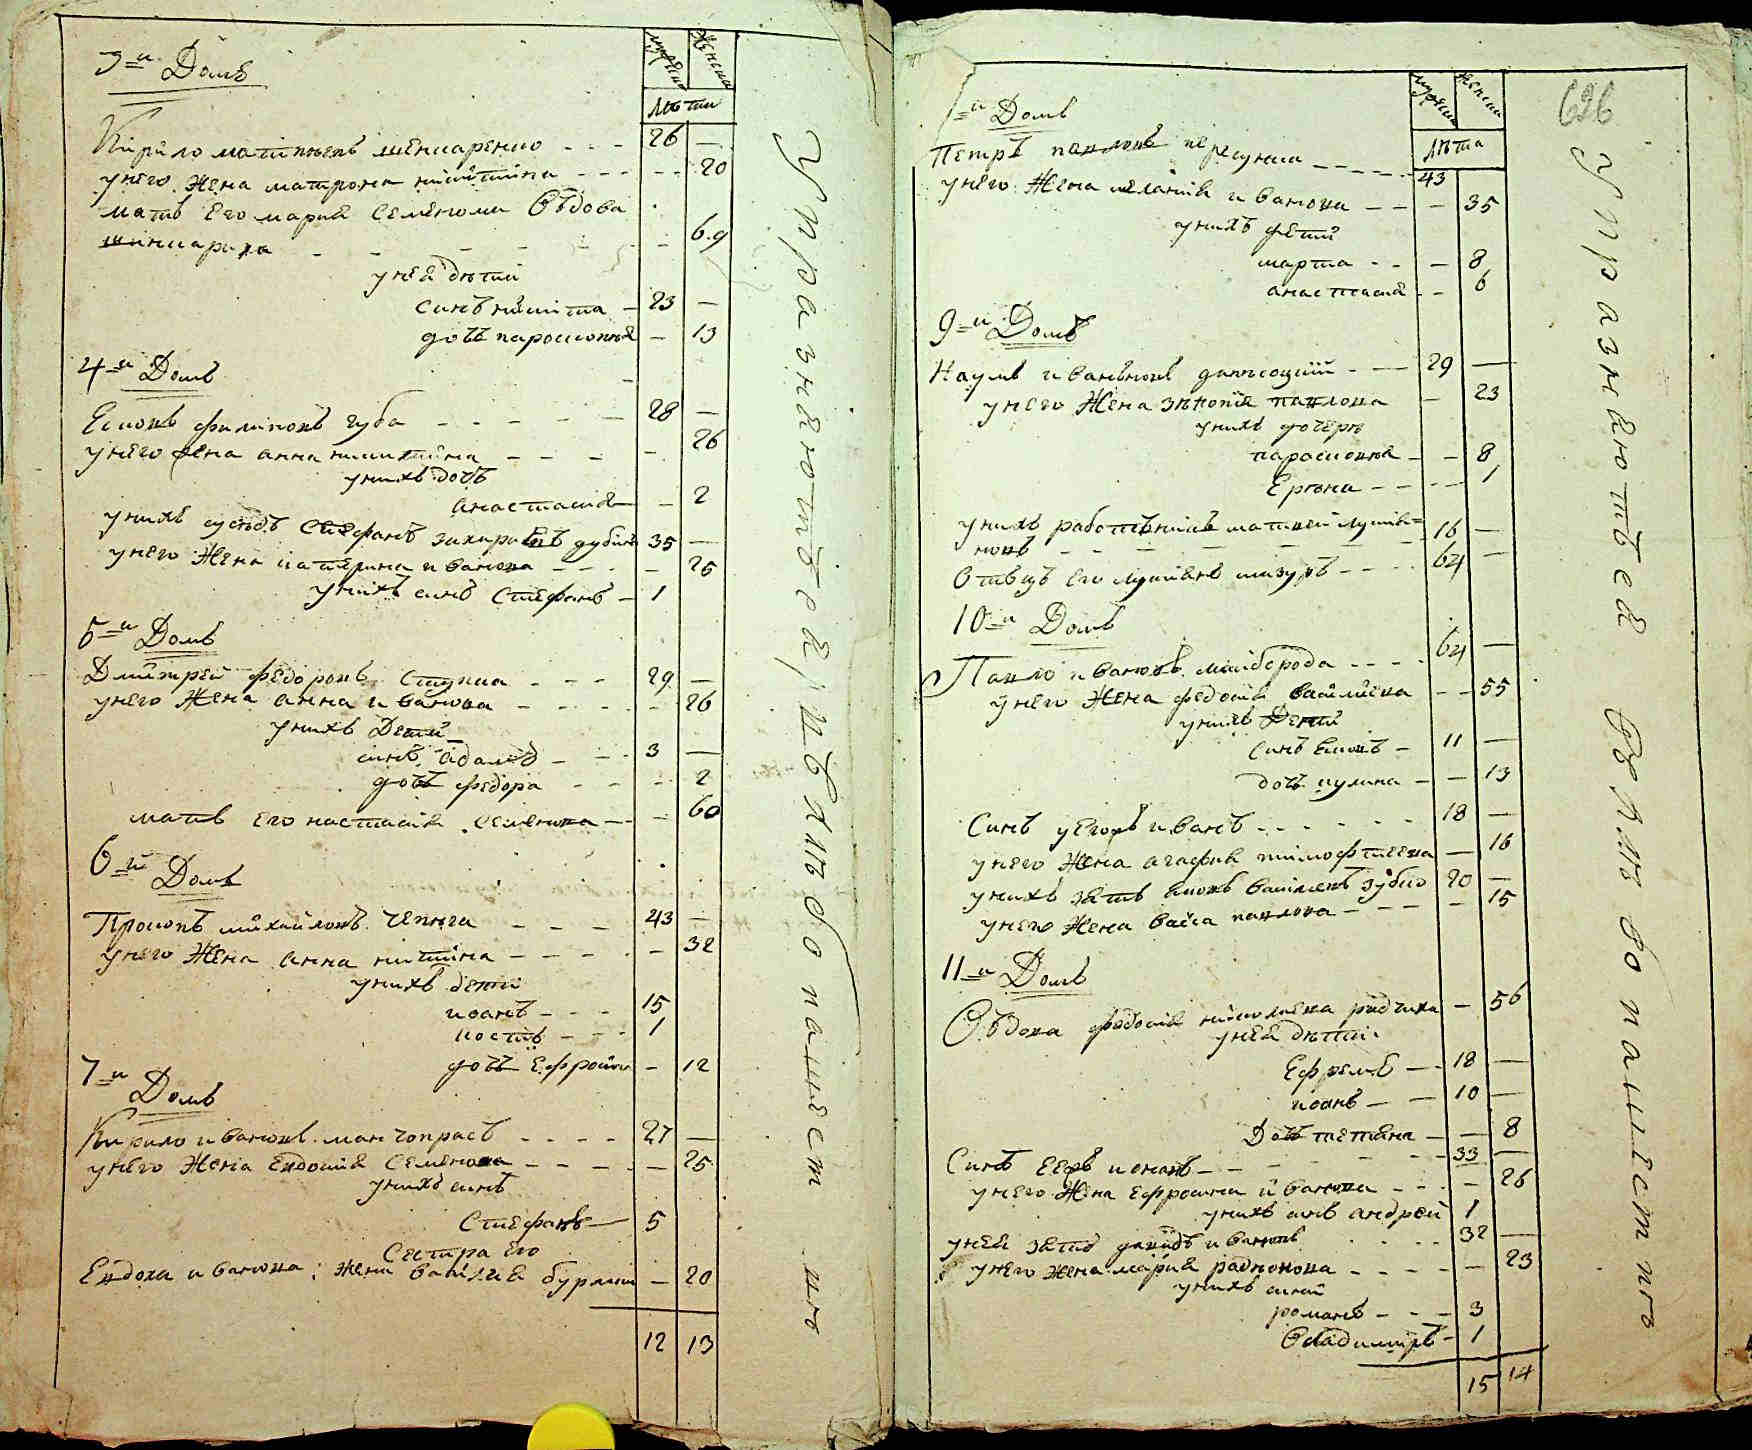 3й Домъ
мужеска
женска
лѣта
Кирило матвѣевъ шенкаренко - - - 26 —
унего жена матрона никитина - - - - - 20
мать его мария семенова вдова
шинкариха - - - - - 69
унея дѣти
синъ никита - 23 —
дочь параскевия - 13
4й Домъ
Есиовъ филиповъ губа - - - - - 28 —
унего жена анна никитина - - - - - 26
унихъ дочь
анастасия - 2
унихъ сусѣдъ Стефанъ захариевъ 35 —
унего жена катерина иванова - - - - 25
унихъ синъ Стефанъ - 1
5й Домъ
Дмитрей федоровъ Ступка - - - 29 —
унего жена анна иванова - - - - - 26
унихъ дети
синъ адамъ - - - 3 —
дочь федора - - - - 2
мать его настасия семенова - - 60
6й Домъ
Прокопъ михайловъ чепига - - - 43 —
унего жена анна никитина - - - - - 32
унихъ дети
иоанъ - - - 15
костя - - - 1
дочь Ефросиния - 12
7й Домъ
Кирило ивановъ - - - - 27 —
унего жена Евдокия Семенова - - - - - 25
унихъ синъ
Стефанъ — 5
Сестра его
Евдоха иванова жена василия - 20
12 13
упражняются въ хлѣбопашествѣ
Домъ
мужеска
женска
лѣта
626
Петръ павловъ - - - - - 43
унего жена мелания иванова - - - 35
унихъ дѣти
марта - - - 8
анастасия - - 6
9й Домъ
Наумъ ивановъ - - - 29 —
унего жена зѣновия павлова - 23
унихъ дочери
параскевия - - 8
Ерына - - - - 1
унихъ работникъ матвей лукия=
новъ - - - - - - 16 —
отецъ его лукиянъ мазуръ - - - - 64 —
10й Домъ
Павло ивановъ майборода - - - - 64 —
унего жена федосия василиева - - 55
унихъ Дети
синъ - 11 —
дочь акулина - - 13
Синъ уегоръ иванъ - - - - - - 18 —
унего жена агафия тимофтиева — 16
унихъ зять василиевъ зубко 20 —
унего жена васса павлова - - - - - 15
11й Домъ
Вдова федосия николаева - 56
унея дѣти
Ефремъ — 18 —
иоанъ - - 10 —
Дочь тетяна - - 8
Синъ - - - - - - 33 —
унего жена Ефросина иванова - - - - 26
унихъ синъ андрей 1
унея зять давидъ ивановъ - - - - 32 —
унего жена мария радионова - - - - - 23
унихъ сини
романъ - - - 3
Владимиръ - 1
15 14
упражняются въ хлѣбопашествѣ